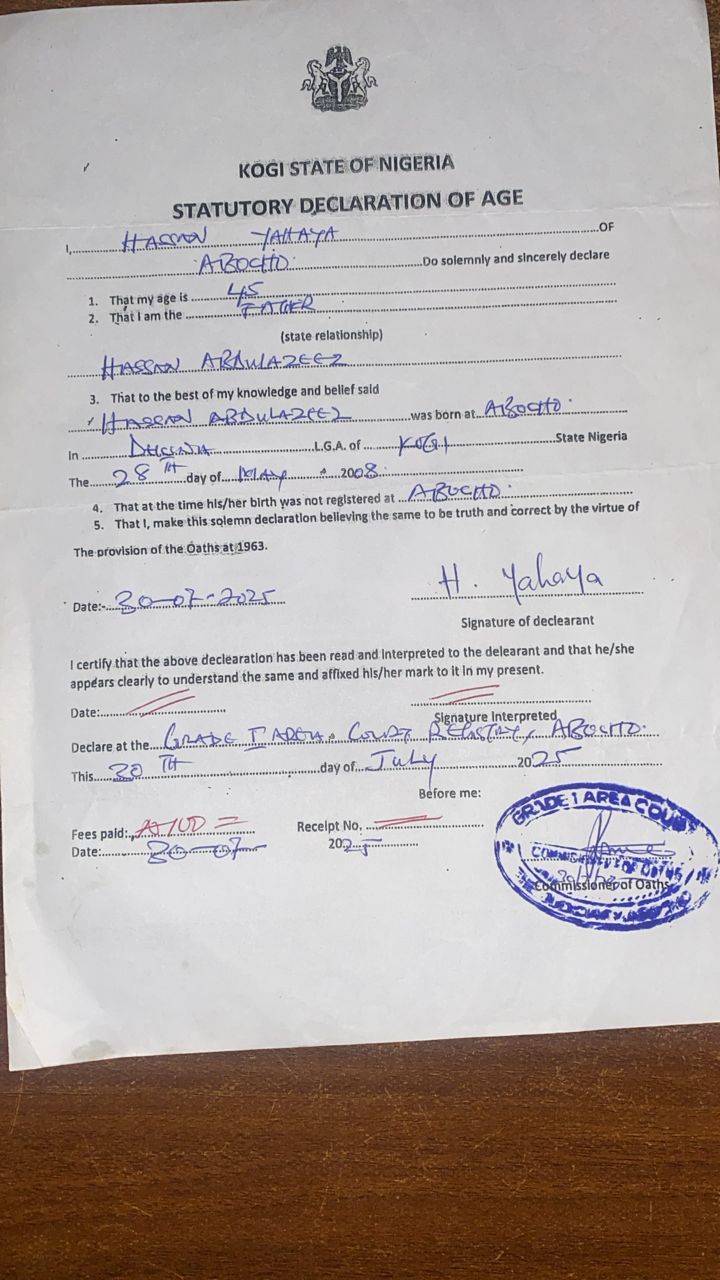 KOGI STATE OF NIGERIA
STATUTORY DECLARATION OF AGE
I, HASSAN YAHAYA OF
ABOCHO. Do solemnly and sincerely declare
1. That my age is 45
2. That I am the FATHER
(state relationship)
HASSAN ABDULAZEEZ
3. That to the best of my knowledge and belief said
HASSAN ABDULAZEEZ was born at ABOCHO.
In DEKINA L.G.A. of KOGI State Nigeria
The 28TH day of MAY 2008.
4. That at the time his/her birth was not registered at ABOCHO.
5. That I, make this solemn declaration believing the same to be truth and correct by the virtue of
The provision of the Oaths at 1963.
Date:- 30-07-2025 H. Yahaya
Signature of declearant
I certify that the above decleration has been read and interpreted to the delearant and that he/she
appears clearly to understand the same and affixed his/her mark to it in my present.
Date:
Signature Interpreted
Declare at the GRADE I AREA COURT REGISTRY, ABOCHO.
This 30TH day of July 2025
Before me:
GRADE 1 AREA COURT
Fees paid: ₦100 = Receipt No.
Date: 30-07- 2025
COMMISSIONER OF OATHS
Commissioner of Oaths